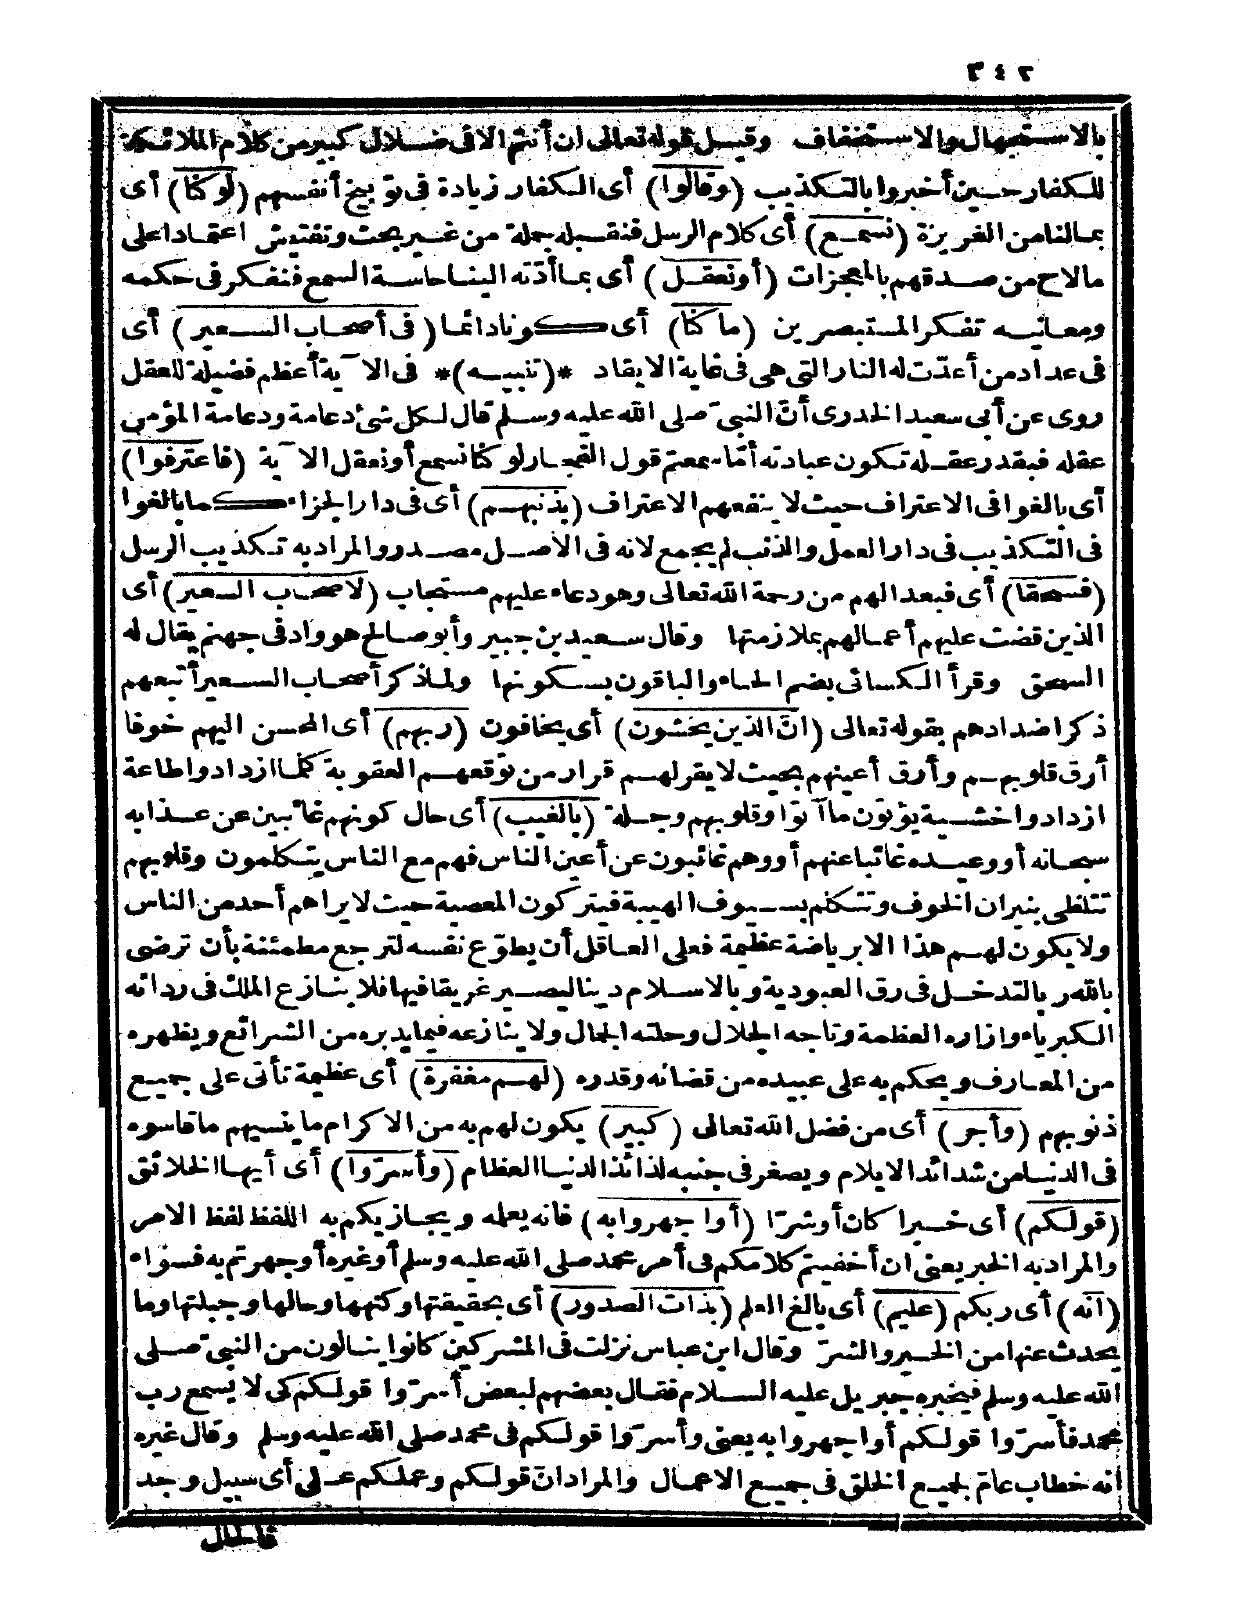 ٣٤٢
بالاستجهال والاستخفاف وقيل قوله تعالى ان أنتم الا فى ضلال كبير من كلام الملائكة
للكفار حين أخبروا بالتكذيب (وقالوا) أى الكفار زيادة فى توبيخ أنفسهم (لو كنا) أى
بمالنا من الغريزة (نسمع) أى كلام الرسل فنقبله جملة من غير بحث وتفتيش اعتمادا على
مالاح من صدقهم بالمعجزات (أو نعقل) أى بما أدّته اليناحاسة السمع فنفكر فى حكمه
ومعانيه تفكر المستبصرين (ما كنا) أى كوننا دائما (فى أصحاب السعير) أى
فى عداد من أعدّت له النار التى هى فى غاية الايقاد *(تنبيه)* فى الآية أعظم فضيلة للعقل
روى عن أبى سعيد الخدرى أنّ النبىّ صلى الله عليه وسلم قال لكل شئ دعامة ودعامة المؤمن
عقله فبقدر عقله تكون عبادته أمّا سمعتم قول الفجار لو كنا نسمع أو نعقل الآية (فاعترفوا)
أى بالغوا فى الاعتراف حيث لا ينفعهم الاعتراف (بذنبهم) أى فى دار الجزاء كما بالغوا
فى التكذيب فى دار العمل والذنب لم يجمع لانه فى الأصل مصدر والمراد به تكذيب الرسل
(فسحقا) أى فبعدا لهم من رحمة الله تعالى وهو دعاء عليهم مستجاب (لاصحاب السعير) أى
الذين قضت عليهم أعمالهم بملازمتها وقال سعيد بن جبير وأبو صالح هو واد فى جهنم يقال له
السحق وقرأ الكسائى بضم الحاء والباقون بسكونها ولما ذكر أصحاب السعير أتبعهم
ذكر اضدادهم بقوله تعالى (انّ الذين يخشون) أى يخافون (ربهم) أى المحسن اليهم خوفا
أرق قلوبهم وأرق أعينهم بحيث لا يقر لهم قرار من توقعهم العقوبة كلما ازدادوا طاعة
ازدادوا خشية يؤتون ما آتوا وقلوبهم وجلة (بالغيب) أى حال كونهم غائبين عن عذابه
سبحانه أو وعيده غائبا عنهم أو وهم غائبون عن أعين الناس فهم مع الناس يتكلمون وقلوبهم
تتلظى بنيران الخوف وتتكلم بسيوف الهيبة فيتركون المعصية حيث لا يراهم أحد من الناس
ولا يكون لهم هذا الا برياضة عظيمة فعلى العاقل أن يطوّع نفسه لترجع مطمئنة بأن ترضى
بالله ربا لتدخل فى رق العبودية وبالاسلام دينا ليصير غريقا فيها فلا ينازع الملك فى ردائه
الكبرياء وازاره العظمة وتاجه الجلال وحلته الجمال ولا ينازعه فيما يدبره من الشرائع ويظهره
من المعارف ويحكم به على عبيده من قضائه وقدره (لهم مغفرة) أى عظيمة تأتى على جميع
ذنوبهم (وأجر) أى من فضل الله تعالى (كبير) يكون لهم به من الاكرام ما ينسيهم ما قاسوه
فى الدنيا من شدائد الايلام ويصغر فى جنبه لذائذ الدنيا العظام (وأسرّوا) أى أيها الخلائق
(قولكم) أى خيرا كان أو شرّا (أو اجهروا به) فانه يعلمه ويجازيكم به اللفظ لفظ الامر
والمراد به الخبر يعنى ان أخفيتم كلامكم فى أمر محمد صلى الله عليه وسلم أو غيره أو جهرتم به فسواء
(انه) أى ربكم (عليم) أى بالغ العلم (بذات الصدور) أى بحقيقتها وكنهها وحالها وجبلتها وما
يحدث عنها من الخير والشرّ وقال ابن عباس نزلت فى المشركين كانوا ينالون من النبىّ صلى
الله عليه وسلم فيخبره جبريل عليه السلام فقال بعضهم لبعض أسرّوا قولكم كى لا يسمع رب
محمد فأسرّوا قولكم أو اجهروا به يعنى وأسرّوا قولكم فى محمد صلى الله عليه وسلم وقال غيره
انه خطاب عامّ لجميع الخلق فى جميع الاعمال والمراد انّ قولكم وعملكم على أى سبيل وجد
فالحال